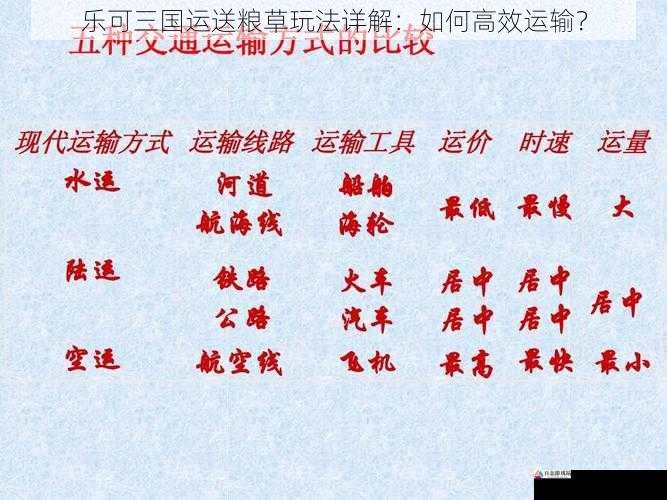 乐可三国运送粮草玩法详解：如何高效运输？
五种交通运输方式的比较
现代运输方式 运输线路 运输工具 运价 时速 运量
水运 河道 船舶 最低 最慢 大
航海线 海轮
陆运 铁路 火车 居中 居中 居中
公路 汽车 居中 居中
空运 航空线 飞机 最高 最快 最小